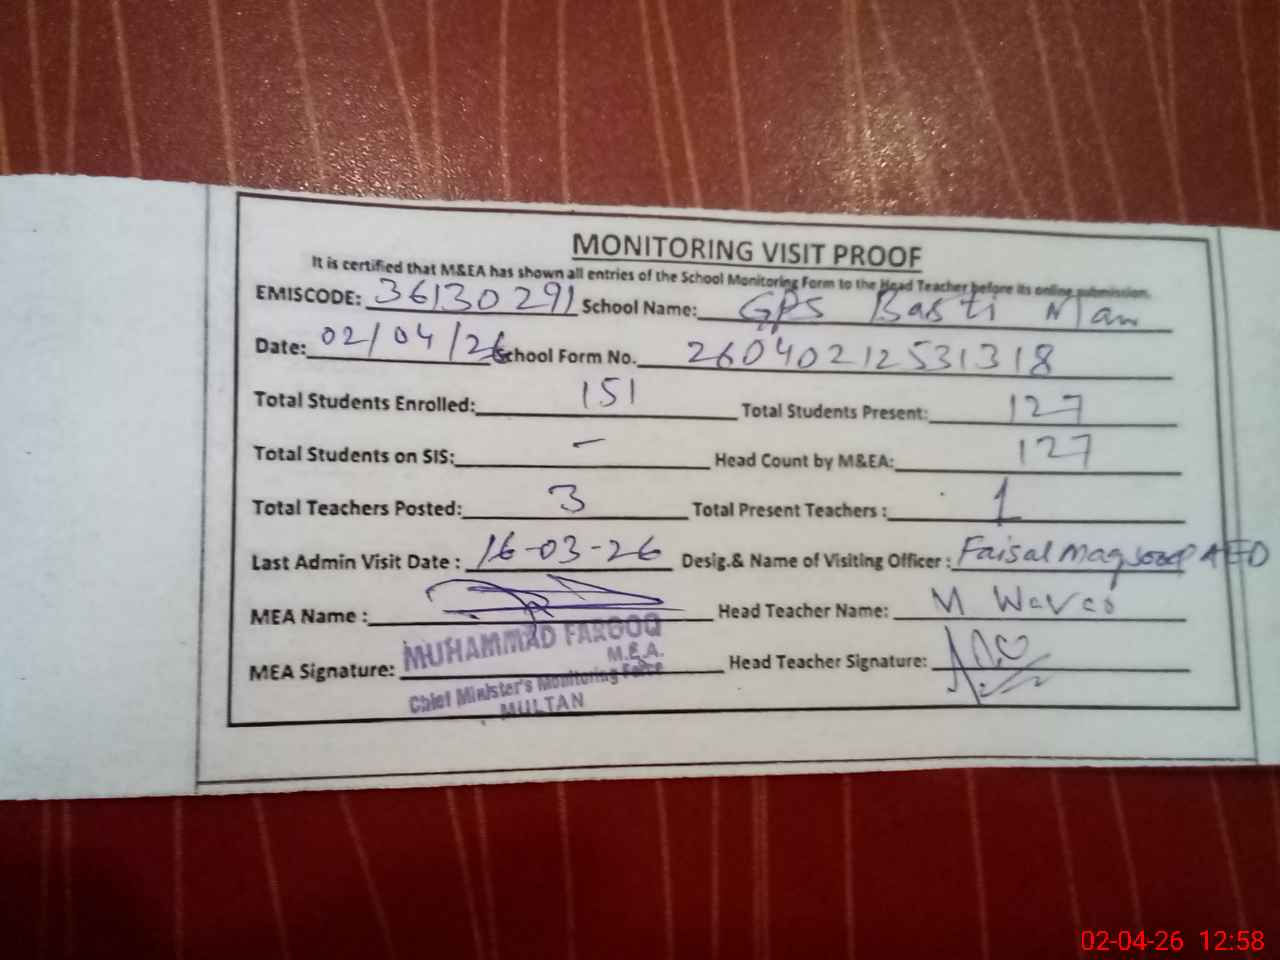 MONITORING VISIT PROOF
It is certified that M&EA has shown all entries of the School Monitoring Form to the Head Teacher before its online submission.
EMISCODE: 36130291 School Name: GPS Basti Man
Date: 02/04/26 School Form No. 26040212531318
Total Students Enrolled: 151 Total Students Present: 127
Total Students on SIS: - Head Count by M&EA: 127
Total Teachers Posted: 3 Total Present Teachers : 1
Last Admin Visit Date : 16-03-26 Desig.& Name of Visiting Officer : Faisal Maqsood AEO
MEA Name : Head Teacher Name: M
MUHAMMAD FAROOQ
M.E.A.
MEA Signature: Head Teacher Signature:
Chief Minister's Monitoring Force
MULTAN
02-04-26 12:58